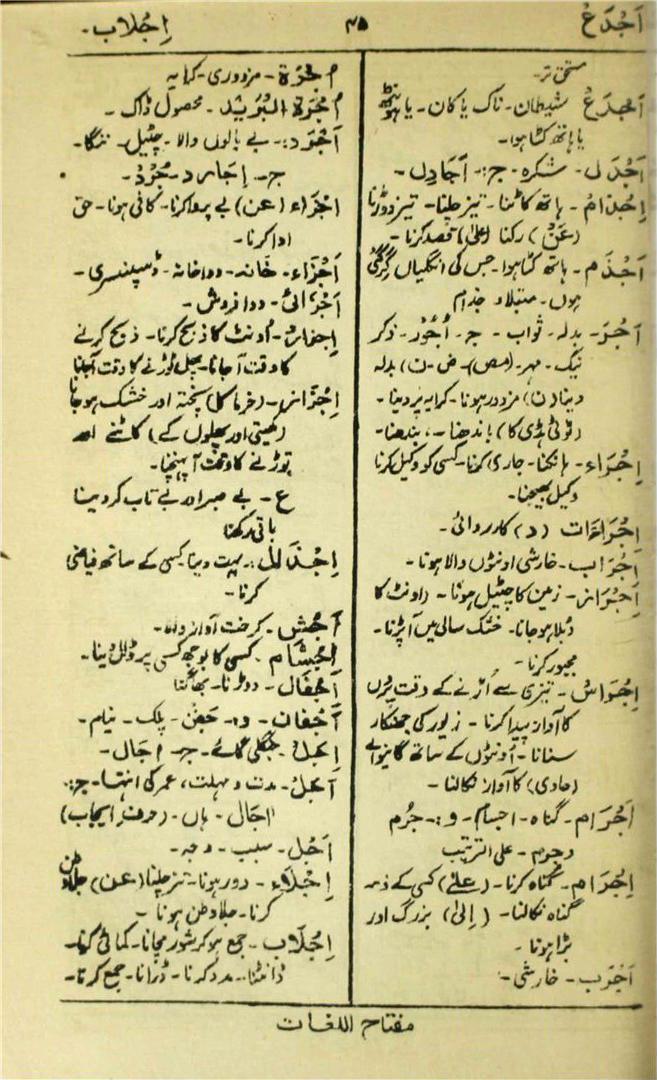 اَجْدَعُ
۴۵
اِجْلاب۔
مستحق تر۔
اَجْدَعُ شیطان۔ ناک یا کان۔ یا ہونٹھ
یا ہاتھ کٹا ہوا۔
اَجْدَل۔ شکرہ۔ ج:۔ اَجَادِل۔
اِجْذَامُ۔ ہاتھ کاٹنا۔ تیز چلنا۔ تیز دوڑنا
(عَنْ) رکنا (علیٰ) قصد کرنا۔
اَجْذَم۔ ہاتھ کٹا ہوا۔ جس کی انگلیاں گرگئی
ہوں۔ مبتلاء جذام
اَجْرَ۔ بدلہ۔ ثواب۔ ج۔ اُجُوْر۔ ذکر
نیک۔ مہر۔ (مص)۔ ض۔ ن) بدلہ
دینا (ن) مزدور ہونا۔ کرایہ پر دینا۔
(ٹوٹی ہڈی کا) باندھنا۔ بندھنا۔
اِجْرَاء۔ ہانکنا۔ جاری کرنا۔ کسی کو وکیل کرنا
وکیل بھیجنا۔
اِجْرَاءَات (د) کارروائی۔
اِجْرَاب۔ خارشی اونٹوں والا ہونا۔
اِجْرَاز۔ زمین کا چٹیل ہونا۔ (اونٹ کا
دُبلا ہوجانا۔ خشک سالی میں آپڑنا۔
مجبور کرنا۔
اِجْرَاس۔ تیزی سے اُڑنے کے وقت پروں
کا آواز پیدا کرنا۔ زیور کی جھنکار
سنانا۔ اُونٹوں کے ساتھ گانیوالے
(حادی) کا آواز نکالنا۔
اَجْرَام۔ گناہ۔ اجسام۔ و:۔ جُرم
وجِرم۔ علی الترتیب
اِجْرَام۔ گناہ کرنا۔ (علیٰ) کسی کے ذمہ
گناہ نکالنا۔ (اِلیٰ) بزرگ اور
بڑا ہونا۔
اَجْرَب۔ خارشی۔
اُجْرَة۔ مزدوری۔ کرایہ
اُجْرَةُ البُرَید۔ محصول ڈاک۔
اَجْرَد:۔ بے بالوں والا۔ چٹیل۔ ننگا۔
ج۔ اِجارد۔ جُرْدُ۔
اِجْزَاء (عن) بے پروا کرنا۔ کافی ہونا۔ حق
ادا کرنا۔
اَجْزَاء۔ خَانہ۔ دواخانہ۔ ڈسپنسری۔
اَجْزَائی۔ دوافروش۔
اِجزار۔ اُونٹ کا ذبح کرنا۔ ذبح کرنے
کا وقت آجانا۔ پھل توڑنے کا وقت آجانا
اِجْزَاز۔ (خرما کا) پختہ اور خشک ہوجانا
(کھیتی اور پھلوں کے) کاٹنے اور
توڑنے کا وقت آپہنچنا۔
ع۔ بے صبر اور بے تاب کردینا
باقی رکھنا
اِجْذَالُ:۔ بہت دینا کسی کے ساتھ فیاضی
کرنا۔
اَجَشّ۔ کرخت آواز والا۔
اِجْشَام۔ کسی کا بوجھ کسی پر ڈال دینا۔
اِجْفَال۔ دوڑنا۔ بھاگنا
اَجْفَان۔ و:۔ جَفن۔ پلک۔ نیام۔
اِجلُ۔ جنگلی گائے۔ ج۔ اجال۔
اَجَلُ۔ مدت و مہلت، عمر کی انتہا۔ ج:۔
اٰجَال۔ ہاں۔ (حرفِ ایجاب)
اَجْل۔ سبب۔ وجہ۔
اِجْلَاء۔ دور ہونا۔ تیز چلنا (عن) جلاوطن
کرنا۔ جلاوطن ہونا۔
اِجْلَاب۔ جمع ہوکر شور مچانا۔ کمائی کرنا۔
ڈانٹنا۔ مدد کرنا۔ ڈرانا۔ جمع کرنا۔
مفتاح اللغات